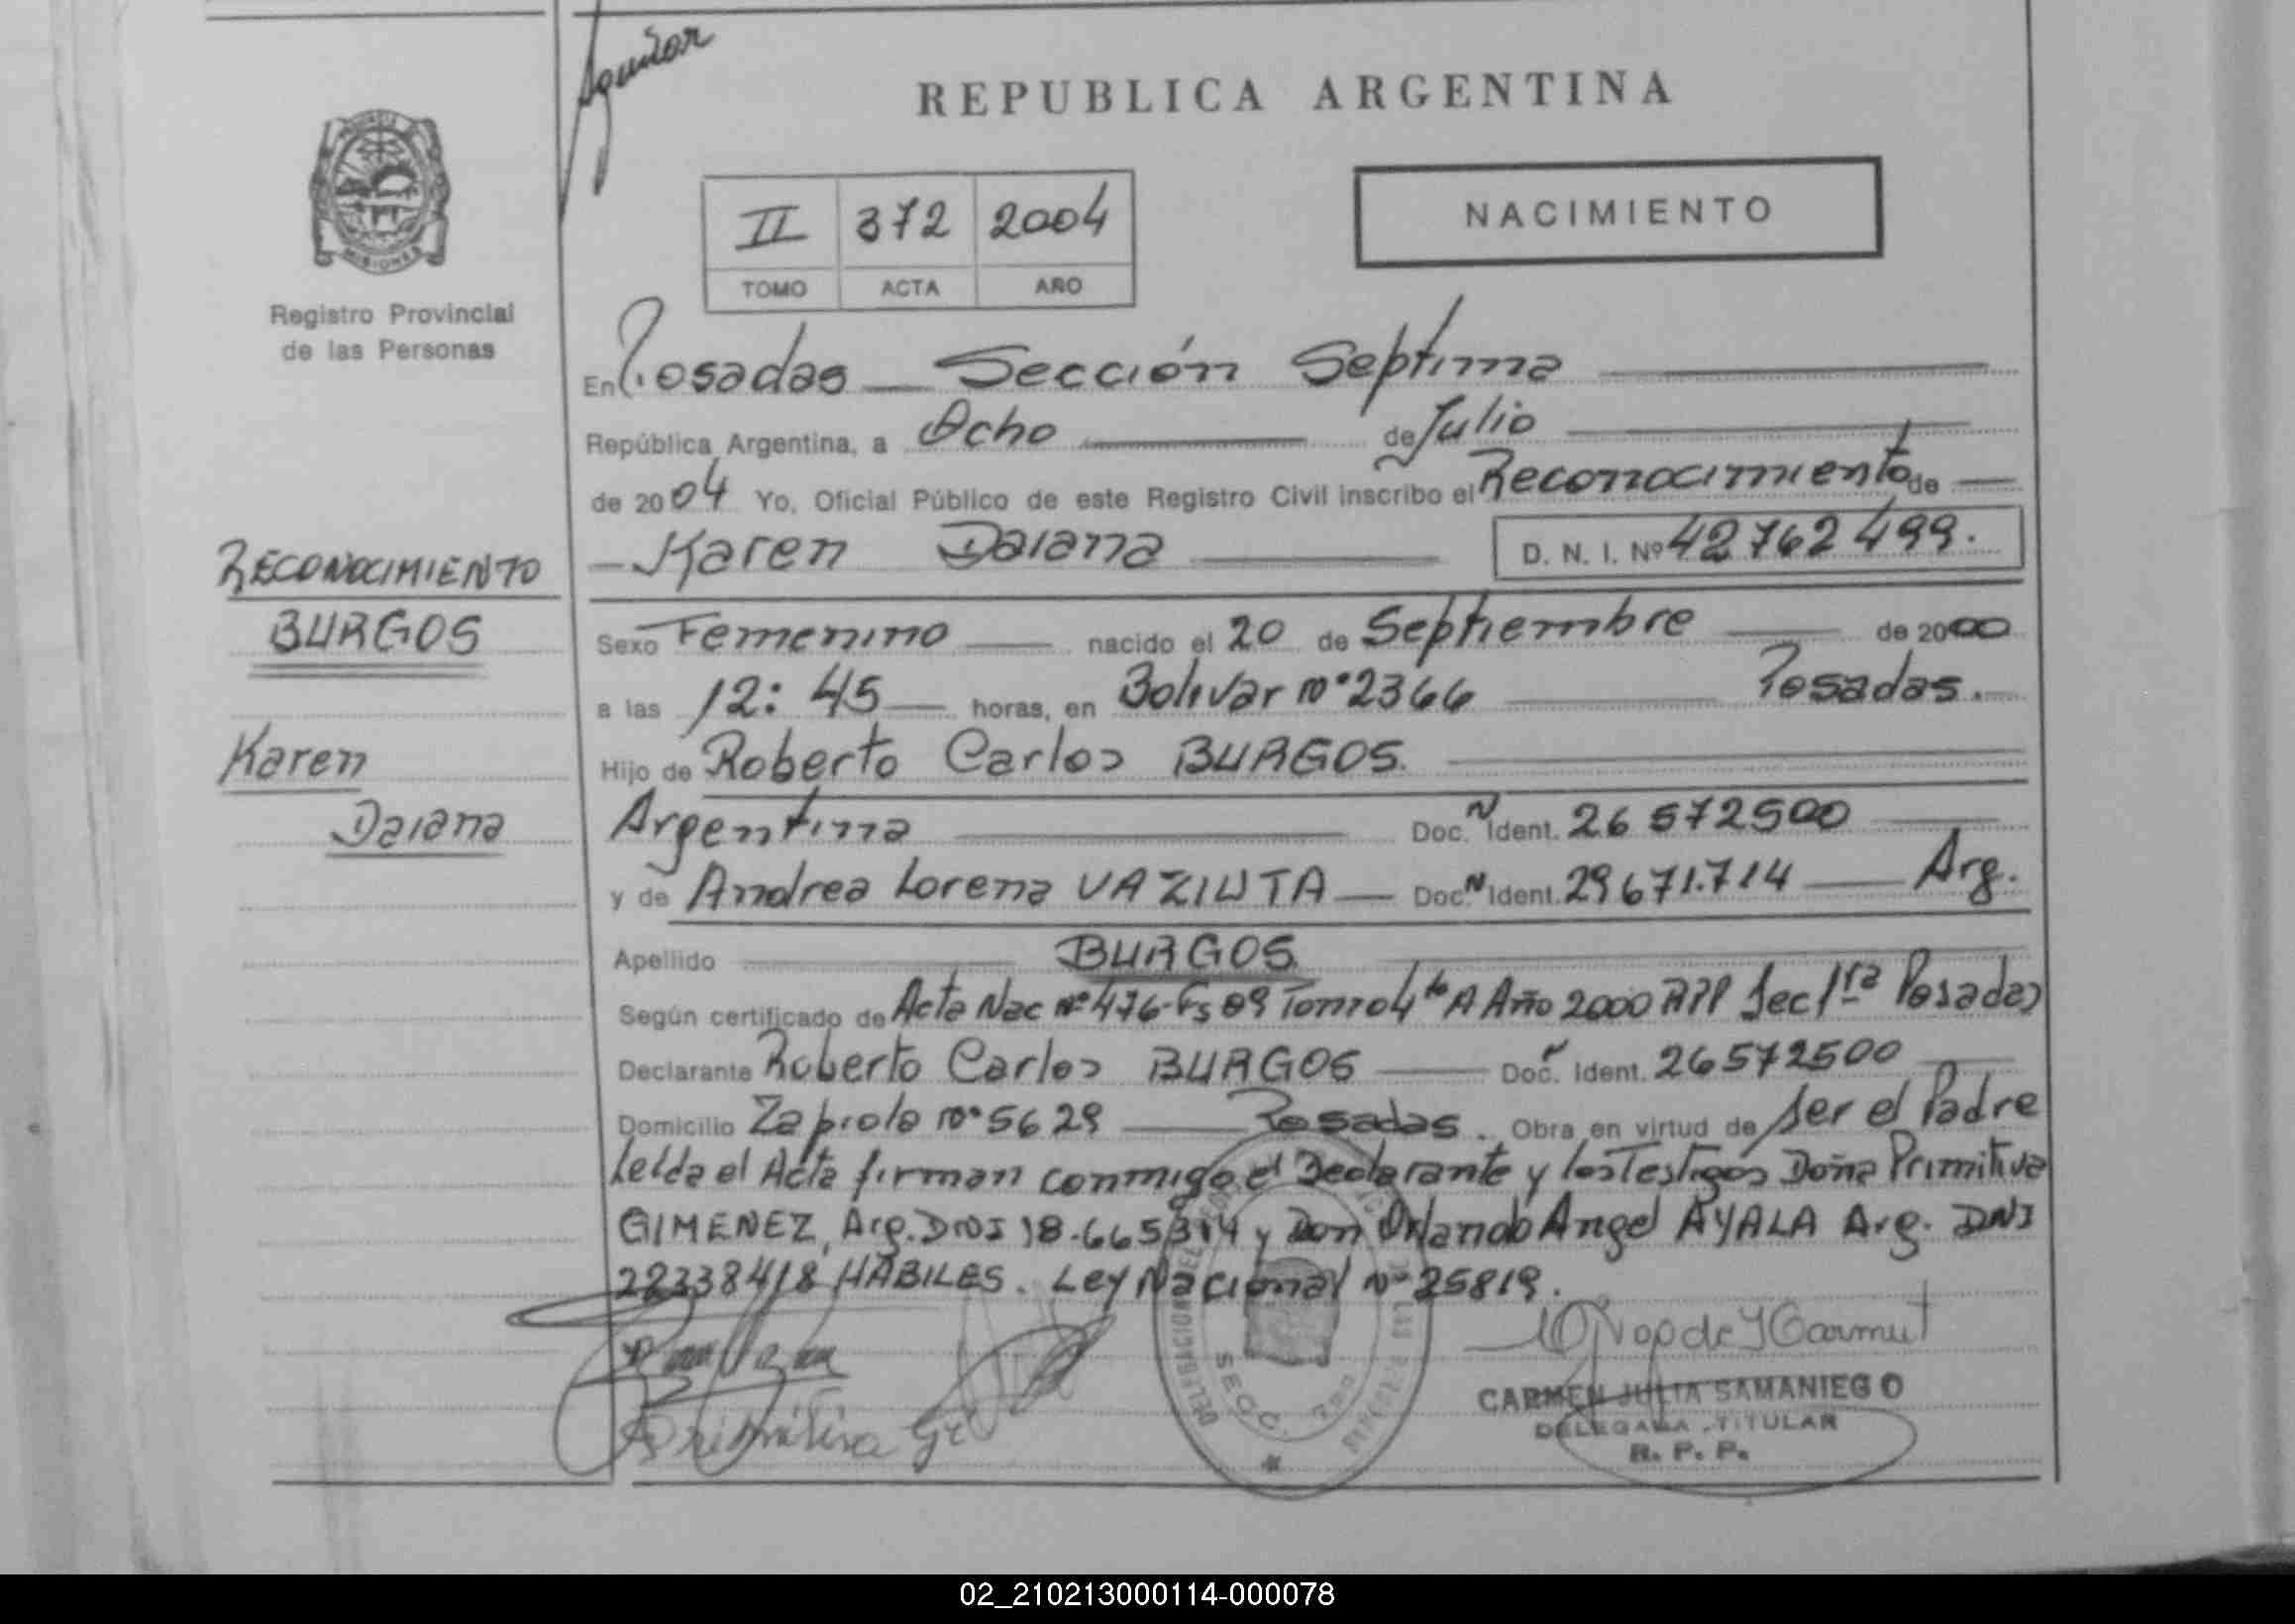 Aguilar
REPUBLICA ARGENTINA
PROVINCIA DE
MISIONES
Registro Provincial
de las Personas
II 372 2004
TOMO ACTA AÑO
NACIMIENTO
En Posadas — Sección Septima
República Argentina, a Ocho de Julio
de 2004 Yo, Oficial Público de este Registro Civil inscribo el Reconocimiento de
— Karen Daiana D. N. I. Nº 42762499.
RECONOCIMIENTO
BURGOS
Karen
Daiana
Sexo Femenino nacido el 20 de Septiembre de 2000
a las 12:45 horas, en Bolivar nº 2366 Posadas.
Hijo de Roberto Carlos BURGOS.
Argentina Doc. N Ident. 26572500
y de Andrea Lorena VAZIUTA — Doc. N Ident. 29671.714 — Arg.
Apellido BURGOS
Según certificado de Acta Nac Nº 476-Fs 89 Tomo 4to A Año 2000 RPP Sec 1ra Posadas
Declarante Roberto Carlos BURGOS — Doc. N Ident. 26572500
Domicilio Zapiola nº 5629 — Posadas. Obra en virtud de ser el Padre
Leida el Acta firman conmigo el Declarante y los Testigos Doña Primitiva
GIMENEZ, Arg. DNI 18.665314 y Don Orlando Angel AYALA Arg. DNI
22338418 HABILES. Ley Nacional Nº 25819.
Primitiva
DELEGACION DEL REGISTRO
SECC. 7ma
CARMEN JULIA SAMANIEGO
DELEGADA TITULAR
R. P. P.
02_210213000114-000078